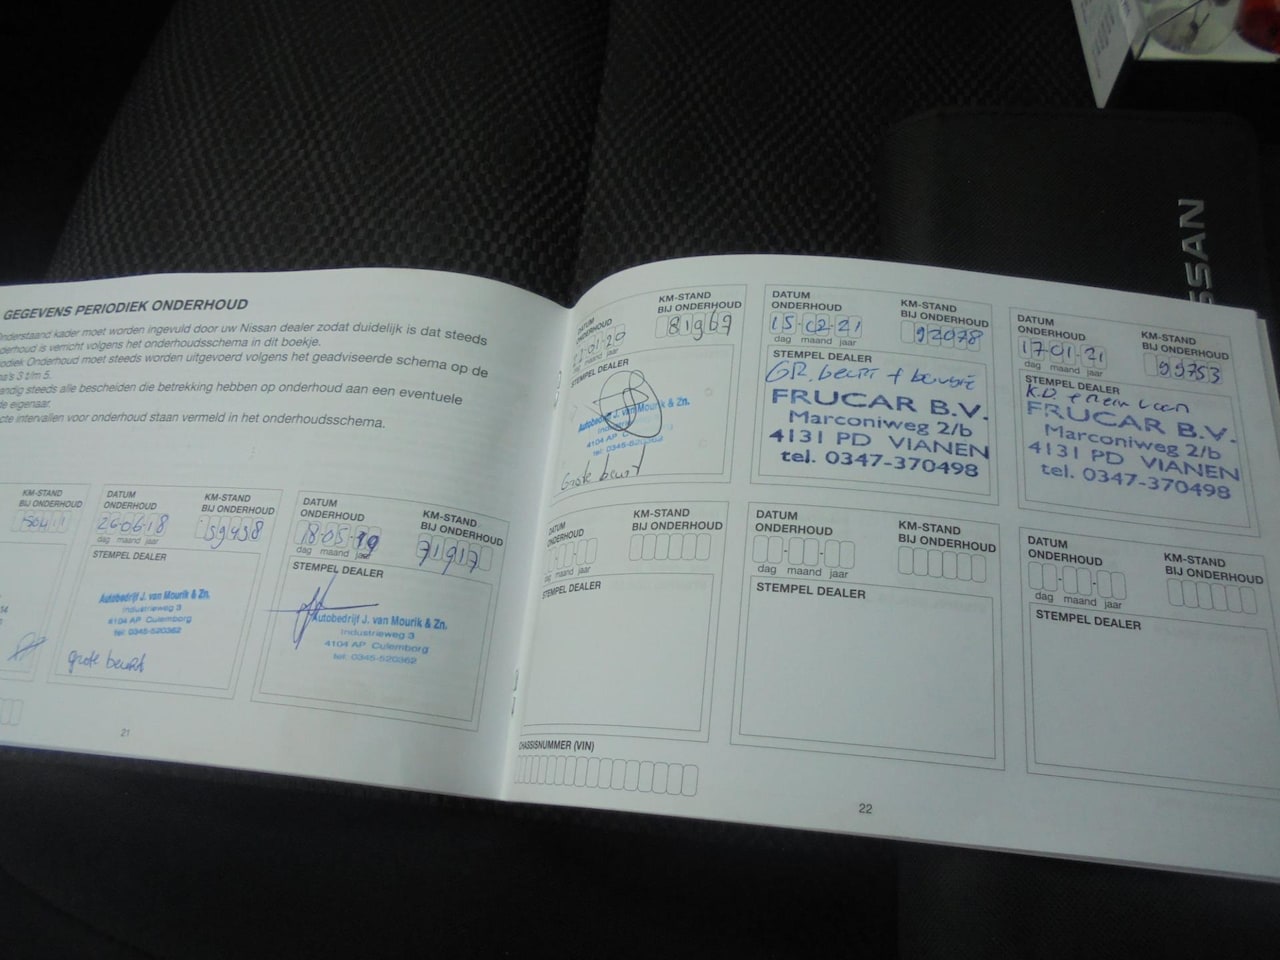 GEGEVENS PERIODIEK ONDERHOUD
Onderstaand kader moet worden ingevuld door uw Nissan dealer zodat duidelijk is dat steeds
derhoud is verricht volgens het onderhoudsschema in dit boekje.
odiek Onderhoud moet steeds worden uitgevoerd volgens het geadviseerde schema op de
na's 3 t/m 5.
andig steeds alle bescheiden die betrekking hebben op onderhoud aan een eventuele
de eigenaar.
cte intervallen voor onderhoud staan vermeld in het onderhoudsschema.
KM-STAND
BIJ ONDERHOUD
DATUM
ONDERHOUD
26-06-18
dag maand jaar
KM-STAND
BIJ ONDERHOUD
59438
STEMPEL DEALER
Autobedrijf J. van Mourik & Zn.
Industrieweg 3
4104 AP Culemborg
tel: 0345-520362
grote beurt
DATUM
ONDERHOUD
18-05-19
dag maand jaar
KM-STAND
BIJ ONDERHOUD
71917
STEMPEL DEALER
Autobedrijf J. van Mourik & Zn.
Industrieweg 3
4104 AP Culemborg
tel: 0345-520362
21
DATUM
ONDERHOUD
-01-20
maand jaar
KM-STAND
BIJ ONDERHOUD
81969
STEMPEL DEALER
Autobedrijf J. van Mourik & Zn.
4104 AP
Grote beurt
DATUM
ONDERHOUD
15-02-21
dag maand jaar
KM-STAND
BIJ ONDERHOUD
92078
STEMPEL DEALER
GR. beurt + bougie
FRUCAR B.V.
Marconiweg 2/b
4131 PD VIANEN
tel. 0347-370498
DATUM
ONDERHOUD
17-01-21
dag maand jaar
KM-STAND
BIJ ONDERHOUD
99753
STEMPEL DEALER
FRUCAR B.V.
Marconiweg 2/b
4131 PD VIANEN
tel. 0347-370498
KM-STAND
BIJ ONDERHOUD
ONDERHOUD
maand jaar
STEMPEL DEALER
DATUM
ONDERHOUD
dag maand jaar
KM-STAND
BIJ ONDERHOUD
STEMPEL DEALER
DATUM
ONDERHOUD
dag maand jaar
KM-STAND
BIJ ONDERHOUD
STEMPEL DEALER
CHASSISNUMMER (VIN)
22
SSAN